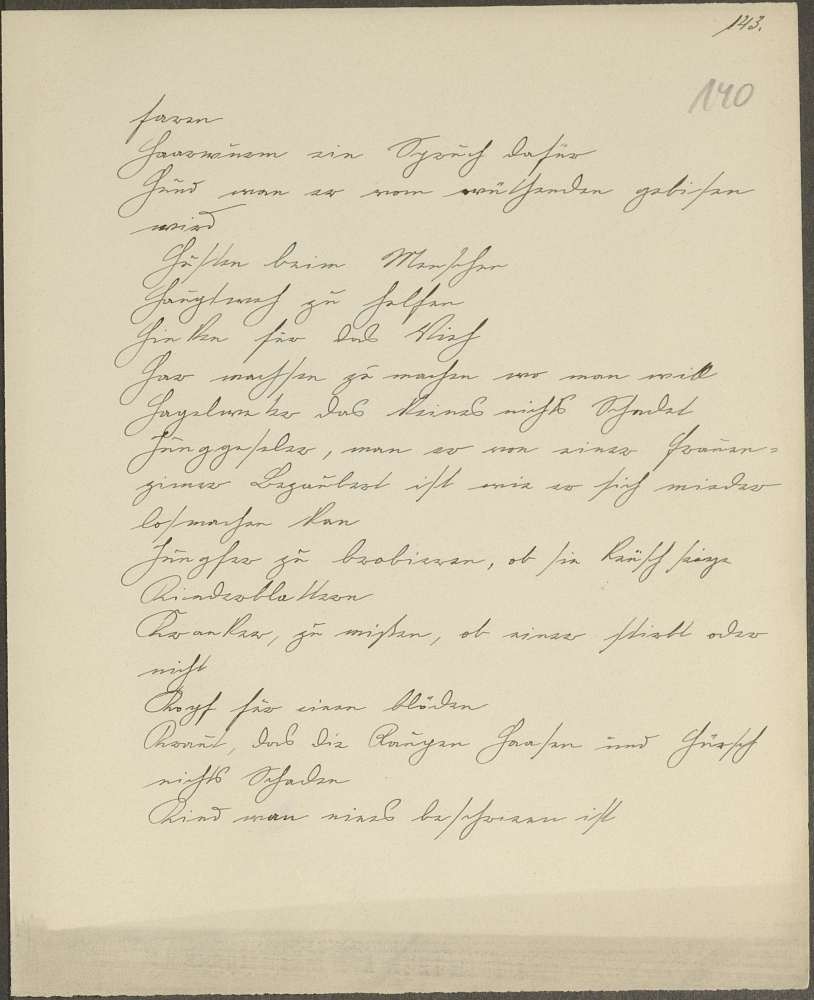 143.
140
faren
Haarwurm ein Spruch dafür
Hund wan er vom wüthenden gebisen
wird
Husten beim Menschen
Hauptweh zu helfen
Hinken für das Vieh
Har wachsen zu machen wo man will
Hagelweter das keines nichts Schadet
Junggeseler, wan er von einer Frauen=
zimer Bezaubert ist wie er sich wieder
losmachen kan
Jungfer zu brobieren, ob sie keusch seye
Kinderblattern
Kranker, zu wißen, ob einer stirbt oder
nicht
Kopf für einen blöden
Kraut, das die Raupen Haasen und Hürsch
nichts Schaden
Kind wan eines beschrieen ist